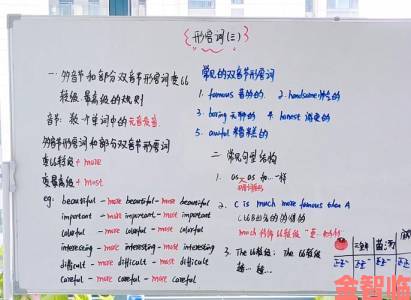 形容词(三)
一. 多音节和部分双音节形容词变比
较级、最高级的规则
音节: 数个单词中的元音发音
多音节形容词和部分双音节形容词
变比较级 + more
变最高级 + most
eg: beautiful - more beautiful - most beautiful
important - more important - most important
colorful - more colorful - most colorful
interesting - more interesting - most interesting
difficult - more difficult - most difficult
careful - more careful - most careful
常见的双音节形容词
1. famous 著名的 2. handsome 帅气的
3. boring 无聊的 4. honest 诚实的
5. awful 糟糕的
二. 常见句型结构
1. as 和...一样
2. C is much more famous then A
C比A出名的
much 修饰比较级
3. The 比较级, the 比较级
越... 越...
金智临